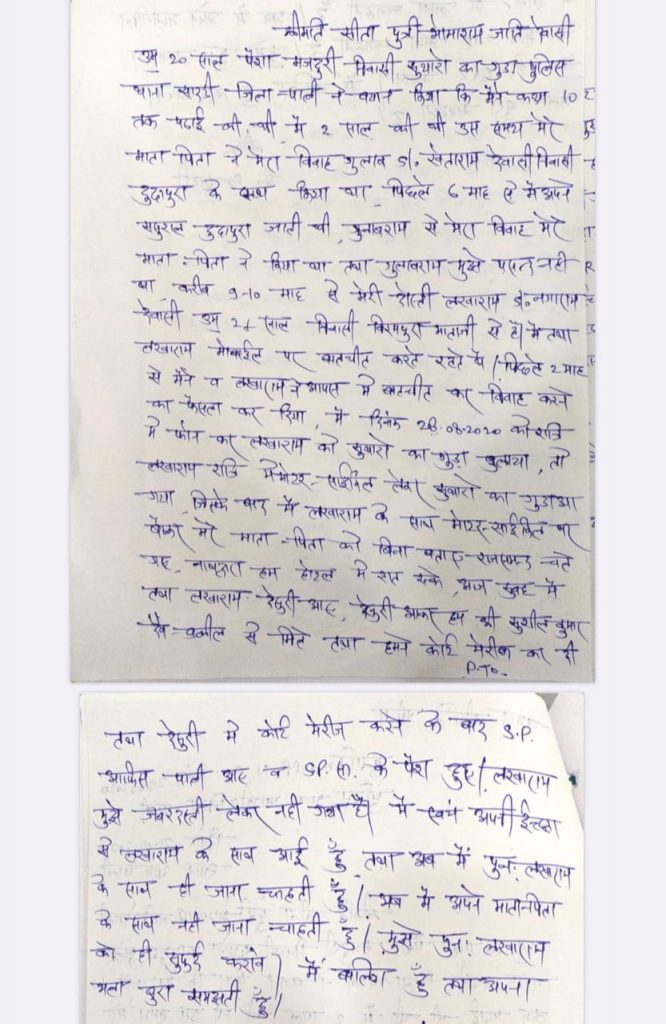 श्रीमति सीता पुत्री भोमाराम जाति देवासी
उम्र 20 साल पेशा मजदुरी निवासी सुथारो का गुडा पुलिस
थाना सादडी जिला पाली ने बयान किया कि मैने कक्षा 10
तक पढाई की थी, मैं 2 साल की थी उस समय मेरे
माता पिता ने मेरा विवाह गुलाब S/o खेताराम देवासी निवासी
डुदापुरा के साथ किया था, पिछले 6 माह से मैं अपने
ससुराल डुदापुरा जाती थी, गुलाबराम से मेरा विवाह मेरे
माता-पिता ने किया था तथा गुलाबराम मुझे पसन्द नही
था, करीब 9-10 माह से मेरी दोस्ती लखाराम S/o नगाराम
देवासी उम्र 24 साल निवासी बिरमपुरा माताजी से है। मैं तथा
लखाराम मोबाईल पर बातचीत करते रहते थे। पिछले 2 माह
से मैने व लखाराम ने आपस मे बातचीत कर विवाह करने
का फैसला कर दिया, मैं दिनांक 28.08.2020 को रात्रि
मे फोन कर लखाराम को सुथारो का गुडा बुलाया, तो
लखाराम रात्रि मे मोटर-साईकिल लेकर सुथारो का गुडा आ
गया, जिसके बाद में लखाराम के साथ मोटर-साईकिल पर
बैठकर मेरे माता-पिता को बिना बताए राजसमन्द चले
गए, नाथद्वारा हम होटल मे रात रूके, आज सुबह मैं
तथा लखाराम देसुरी आए, देसुरी आकर हम श्री सुशील कुमार
वकील से मिले तथा हमने कोर्ट मेरीज कर दी
P.T.O.
तथा देसुरी मे कोर्ट मेरीज करने के बाद S.P.
आफिस पाली आए व S.P. सा. के पेश हुए। लखाराम
मुझे जबरदस्ती लेकर नही गया है। मैं स्वयं अपनी ईच्छा
से लखाराम के साथ आई हूँ तथा अब मैं पुनः लखाराम
के साथ ही जाना चाहती हूँ। अब मैं अपने माता-पिता
के साथ नही जाना चाहती हूँ। मुझे पुनः लखाराम
को ही सुपुर्द करावे। मैं बालिग हूँ तथा अपना
भला बुरा समझती हूँ।